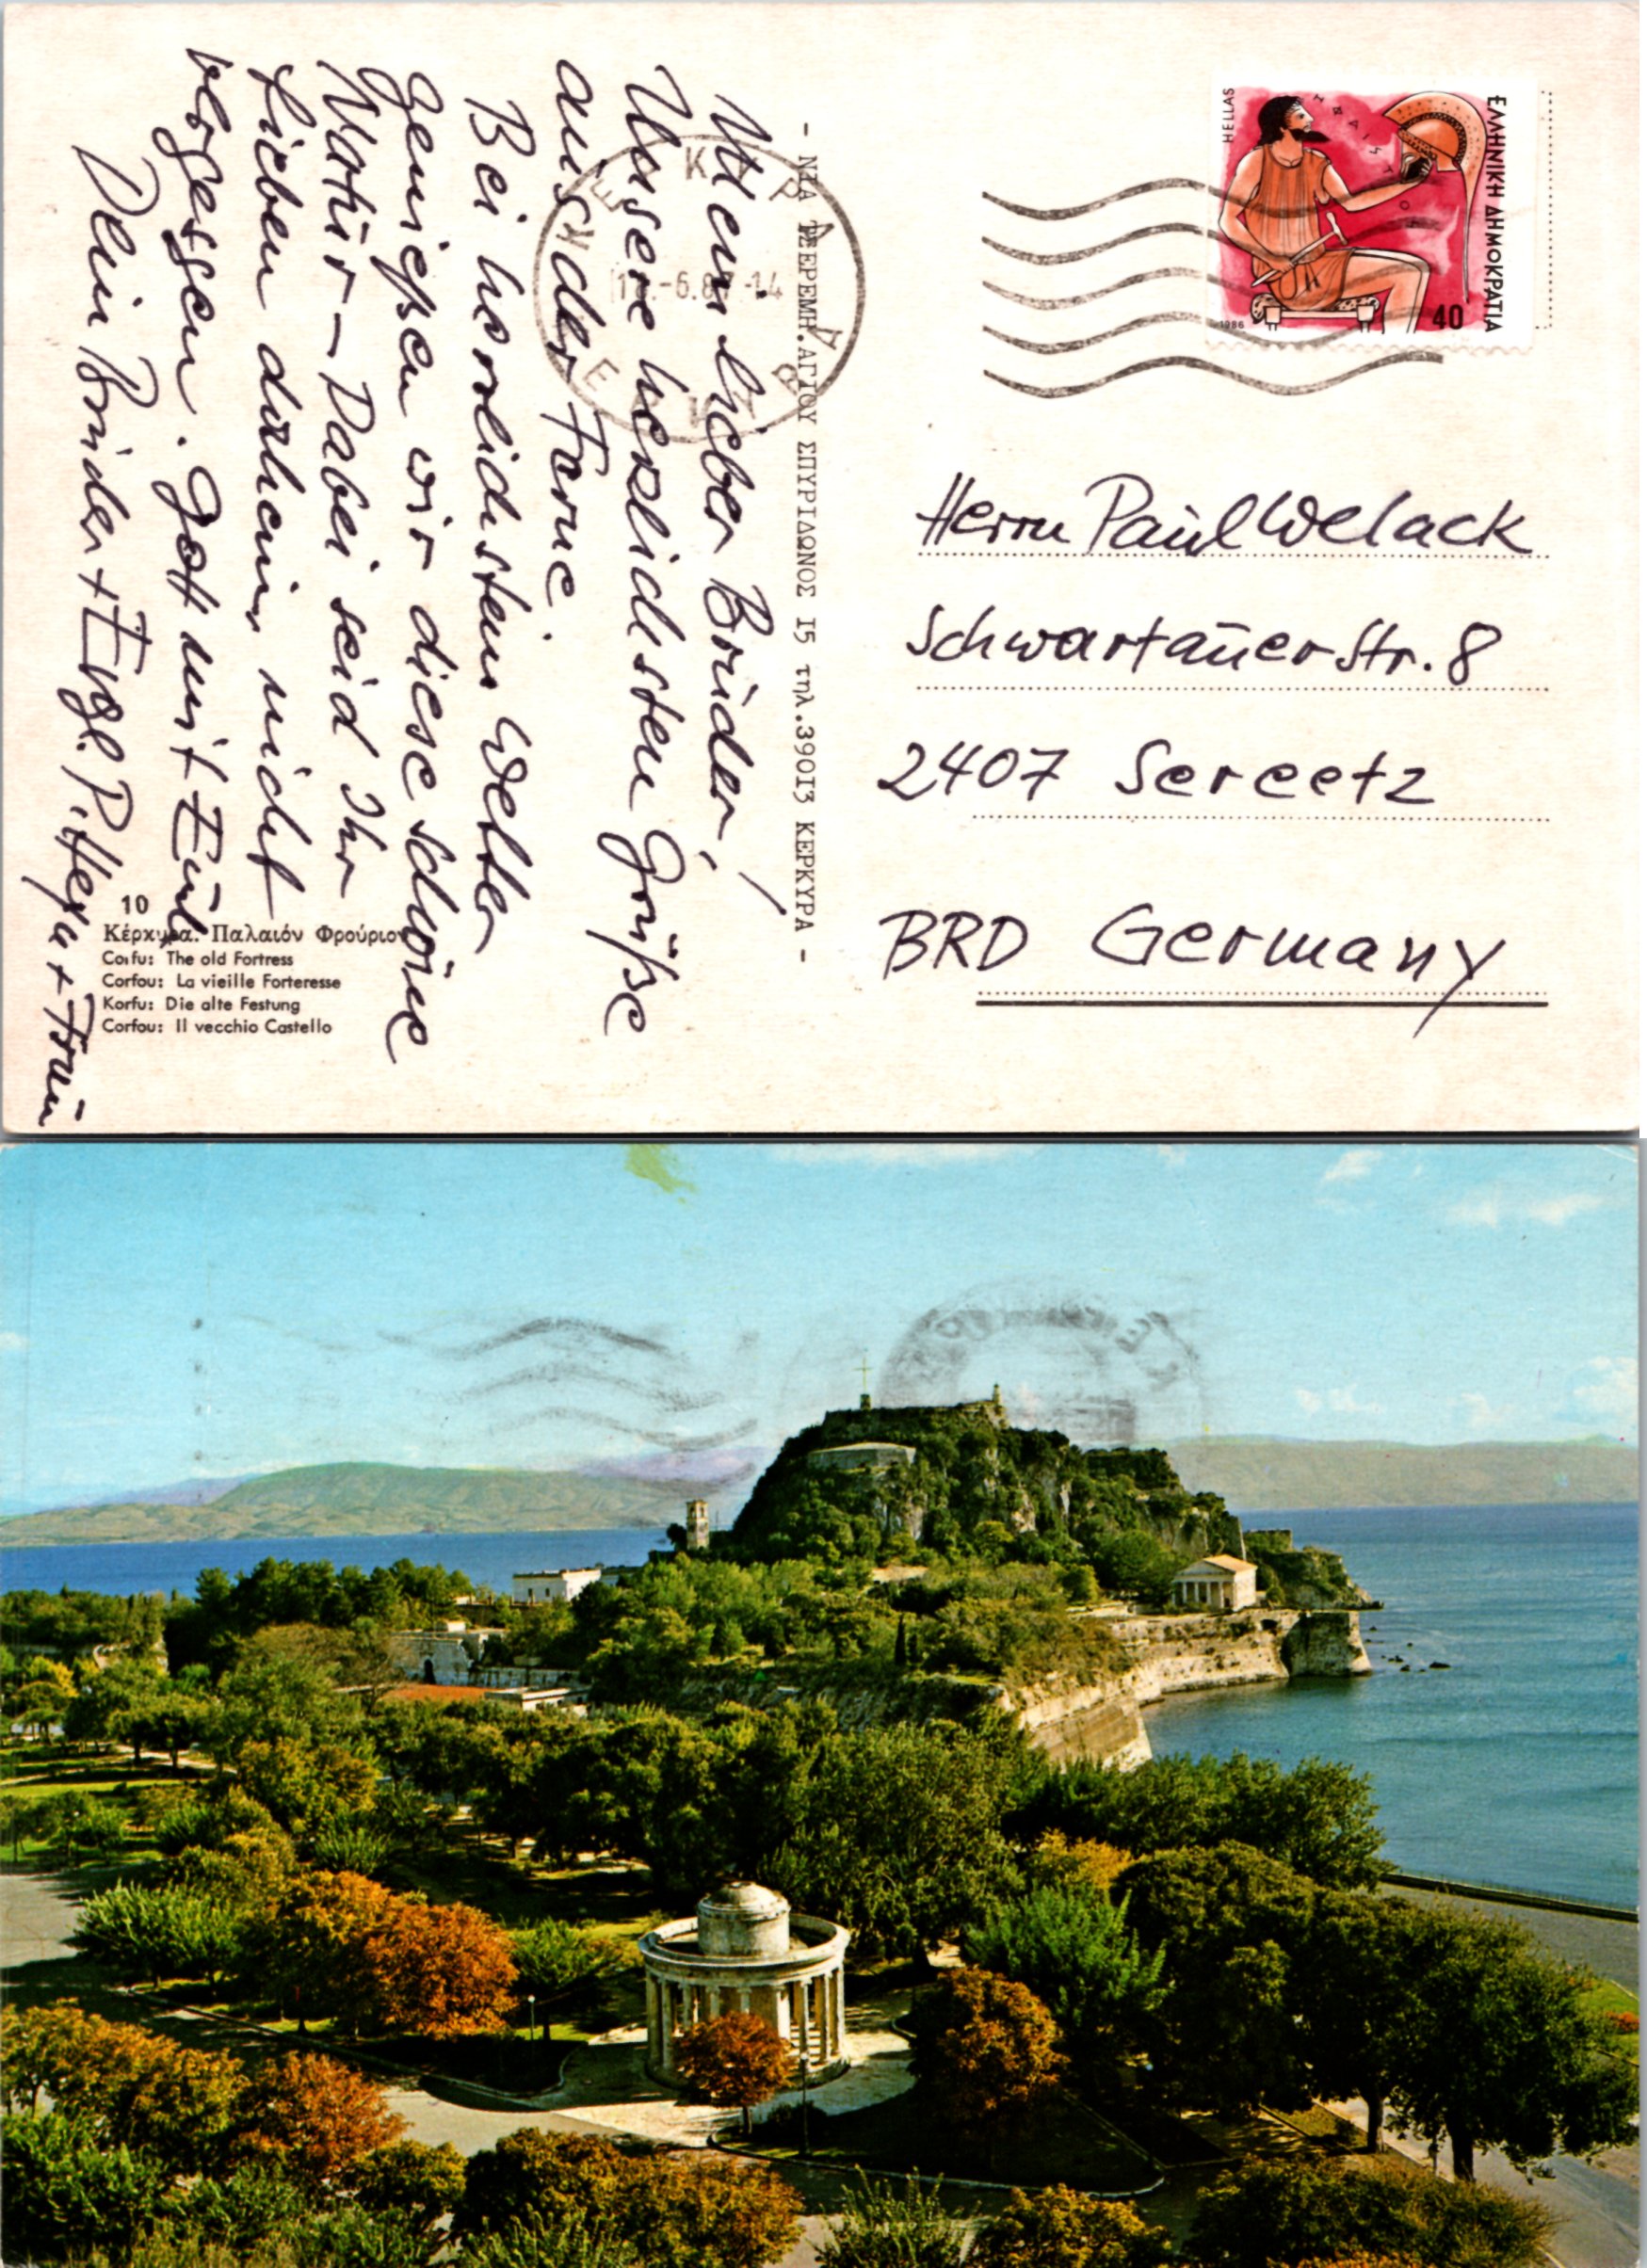 Mein lieber Brüder,
Unsere herzlichsten Grüße
aus der Ferne!
Bei herrlichstem Wetter
genießen wir diese schöne
Natur – Dabei seid Ihr
Lieben daheim nicht
vergessen. Gott mit Euch
Dein Bruder + Evgl. P. + Frau
- ΝΙΑ ΑΓΙΟΥ ΣΠΥΡΙΔΩΝΟΣ 15 τηλ.39013 ΚΕΡΚΥΡΑ -
HELLAS
ΕΛΛΗΝΙΚΗ ΔΗΜΟΚΡΑΤΙΑ
1986
40
Herrn Paul Welack
Schwartauer Str. 8
2407 Sereetz
BRD Germany
10
Κέρκυρα. Παλαιόν Φρούριον
Corfu: The old Fortress
Corfou: La vieille Forteresse
Korfu: Die alte Festung
Corfou: Il vecchio Castello